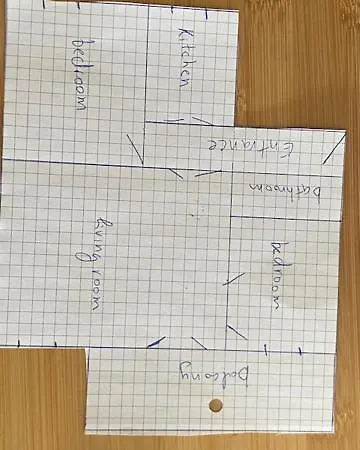 bedroom
Kitchen
Entrance
bathroom
bedroom
living room
balcony